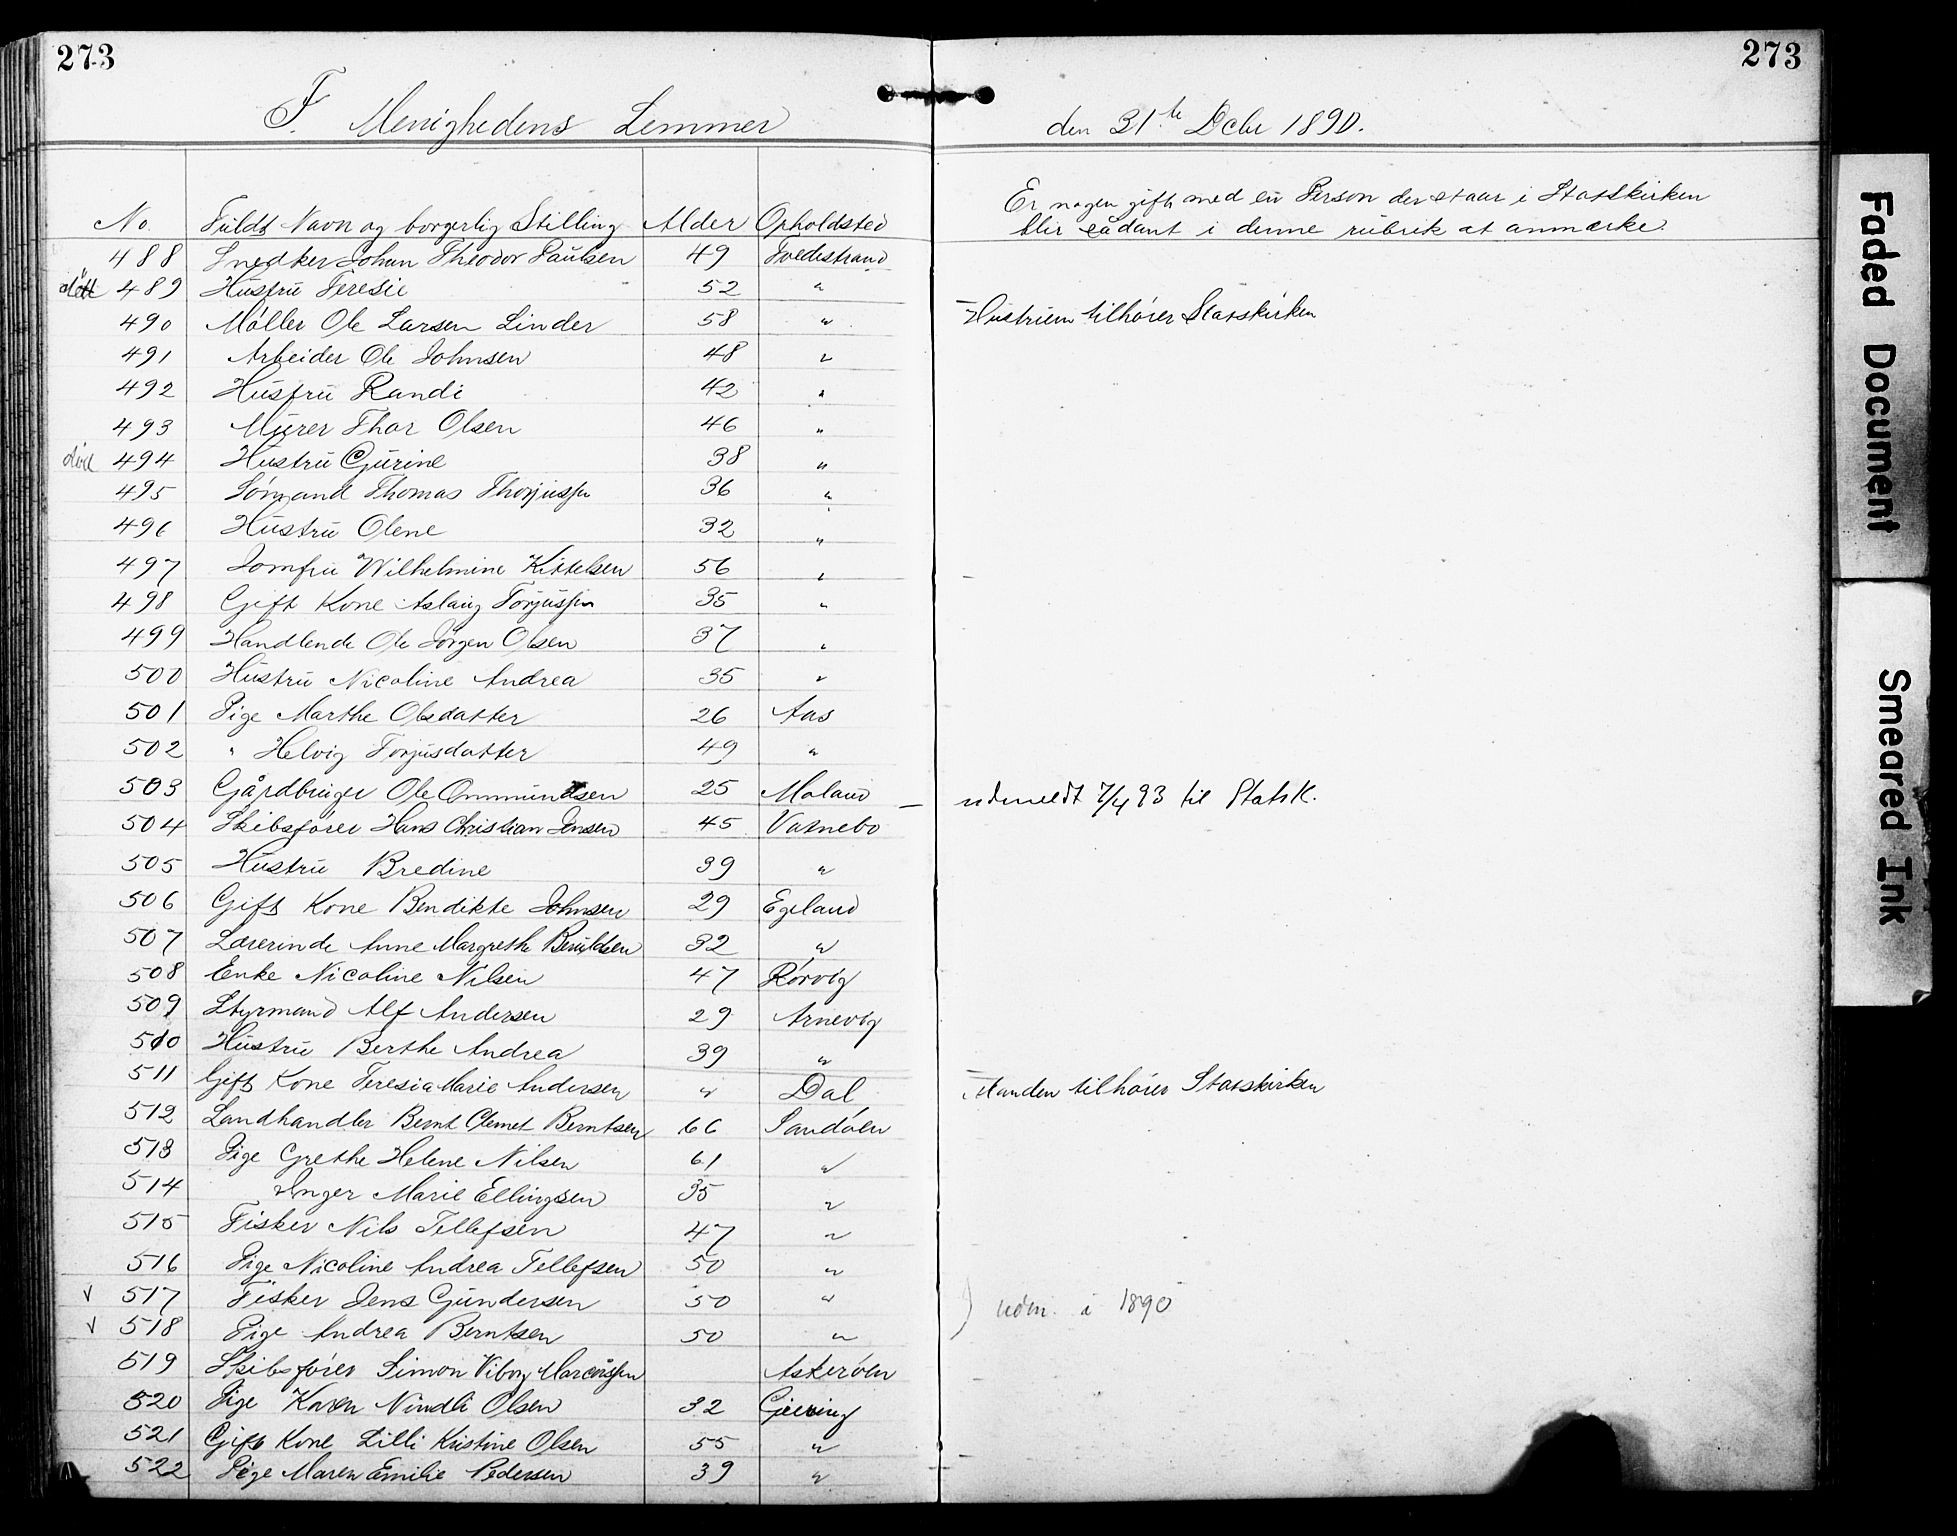 273
273
F. Menighedens Lemmer
den 31te Decbr 1890.
No. Fuldt Navn og borgerlig Stilling Alder Opholdsted
Er nogen gift med en Person der staar i Statskirken
blir sådant i denne rubrik at anmærke.
488 Snedker Johan Theodor Paulsen 49 Tvedestrand
død 489 Hustru Teresie 52 "
490 Møller Ole Larsen Linder 58 " Hustruen tilhører Statskirken
491 Arbeider Ole Johnsen 48 "
492 Hustru Randi 42 "
493 Murer Thor Olsen 46 "
død 494 Hustru Gurine 38 "
495 Sømand Thomas Thorjussen 36 "
496 Hustru Olene 32 "
497 Jomfru Wilhelmine Kittelsen 56 "
498 Gift Kone Aslaug Torjussen 35 "
499 Handlende Ole Jørgen Olsen 37 "
500 Hustru Nicoline Andrea 35 "
501 Pige Marthe Olsdatter 26 Aas
502 " Helvig Torjusdatter 49 "
503 Gårdbruger Ole Ommundsen 25 Moland — udmeldt 7/4 93 til Statsk.
504 Skibsfører Hans Christian Jensen 45 Vatnebo
505 Hustru Bredine 39 "
506 Gift Kone Bendikte Johnsen 29 Egeland
507 Lærerinde Anne Margrethe 32 "
508 Enke Nicoline Nilsen 47 Rørvig
509 Styrmand Alf Andersen 29 Arnevig
510 Hustru Berthe Andrea 39 "
511 Gift Kone Teresia Marie Andersen " Dal Manden tilhører Statskirken
512 Landhandler Bernt Clemet Berntsen 66 Sandøen
513 Pige Grethe Helene Nilsen 61 "
514 Inger Marie Ellingsen 35 "
515 Fisker Nils Tellefsen 47 "
516 Pige Nicoline Andrea Tellefsen 50 "
v 517 Fisker Jens Gundersen 50 "
) udm. i 1890
v 518 Pige Andrea Berntsen 50 "
519 Skibsfører Simon Viborg Marcussen Askerøen
520 Pige Karen Olsen 32 Gjeving
521 Gift Kone Lilli Kristine Olsen 55 "
522 Pige Maren Emilie Pedersen 39 "
Faded Document
Smeared Ink